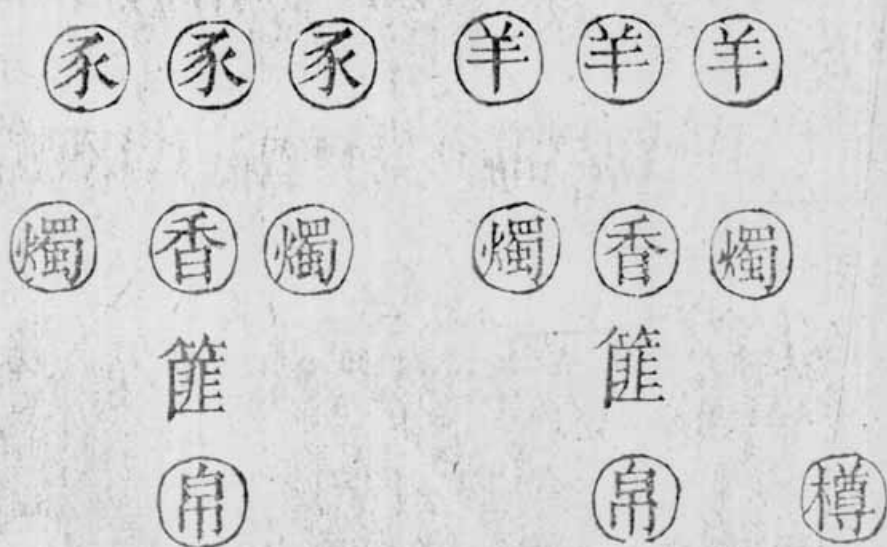 豕 豕 豕 羊 羊 羊
燭 香 燭 燭 香 燭
篚 篚
帛 帛 樽